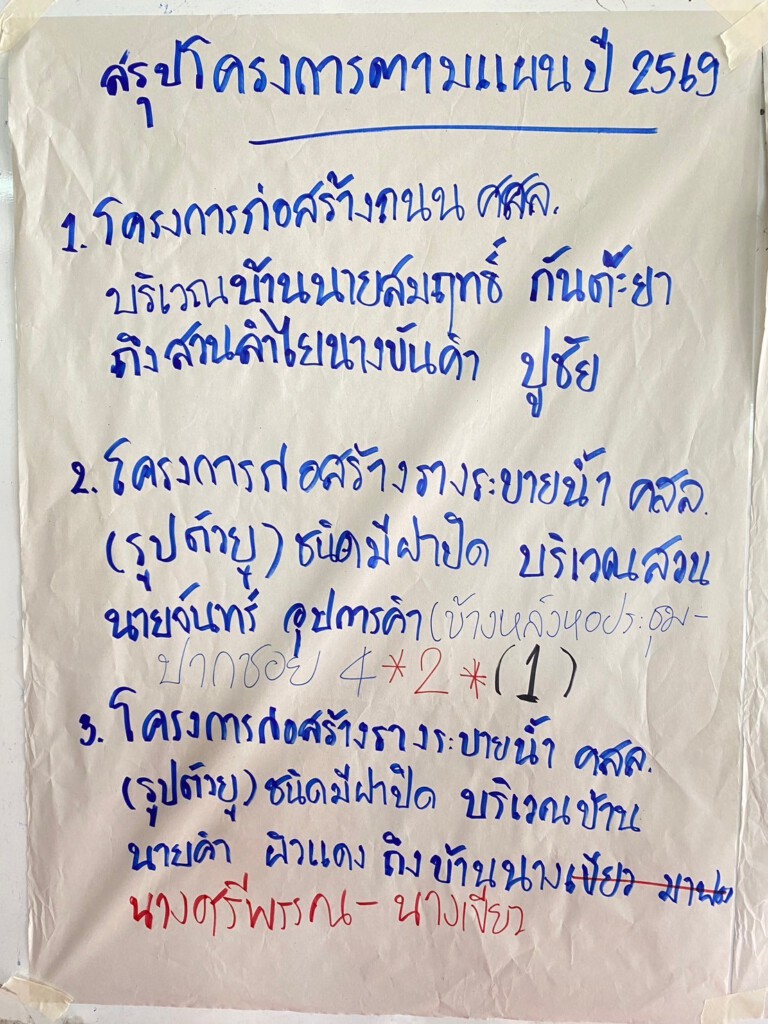 สรุปโครงการตามแผนปี 2569
1. โครงการก่อสร้างถนน คสล.
บริเวณบ้านนายสมฤทธิ์ กันต๊ะยา
ถึงสวนลำไยนางขันคำ ปูชัย
2. โครงการก่อสร้างรางระบายน้ำ คสล.
(รูปตัวยู) ชนิดมีฝาปิด บริเวณสวน
นายจันทร์ อุปการคำ (ข้างหลังหอประชุม-
ปากซอย 4 *2 * (1)
3. โครงการก่อสร้างรางระบายน้ำ คสล.
(รูปตัวยู) ชนิดมีฝาปิด บริเวณบ้าน
นายคำ ผิวแดง ถึงบ้านนางเขียว
นางศรีพรรณ - นางเขียว